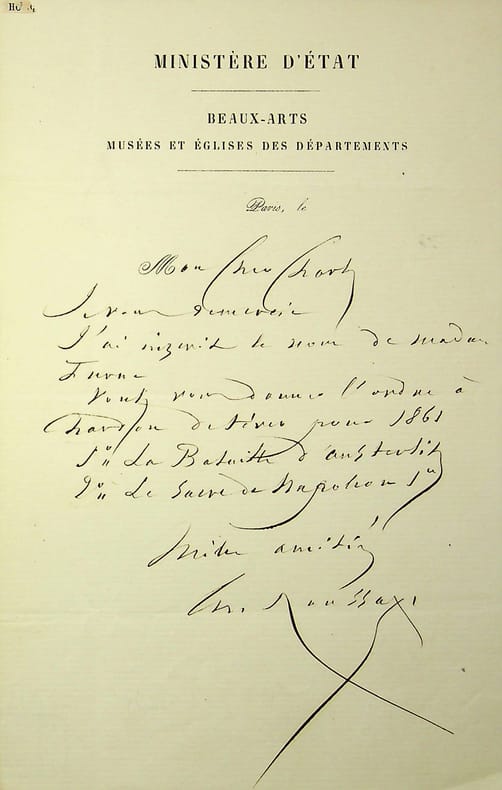 MINISTÈRE D'ÉTAT
BEAUX-ARTS
MUSÉES ET ÉGLISES DES DÉPARTEMENTS
Paris, le
Mon Cher
Je vous remercie
J'ai inscrit le nom de madame
Furne
Voulez vous donner l'ordre à
Chardon de tirer pour 1861
1º La Bataille d'Austerlitz
2º Le Sacre de Napoléon 1er
Mille amitiés